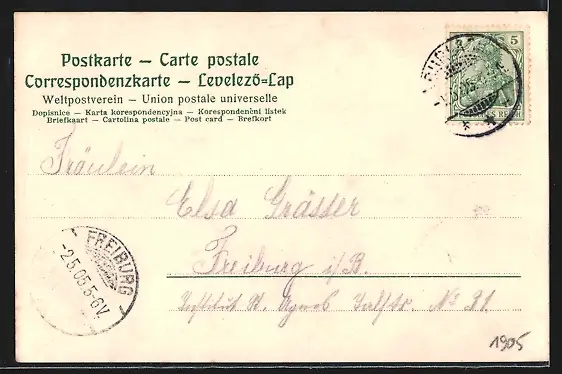 Postkarte — Carte postale
Correspondenzkarte — Levelező-Lap
Weltpostverein — Union postale universelle
Dopisnice — Karta korespondencyjna — Korespondenční listek
Briefkaart — Cartolina postale — Post card — Brefkort
5
DEUTSCHES REICH
Fräulein
Elsa Grässer
Freiburg i/B.
Institut St. Agnes No 31.
FREIBURG
-2.5.05.5-6V.
1905